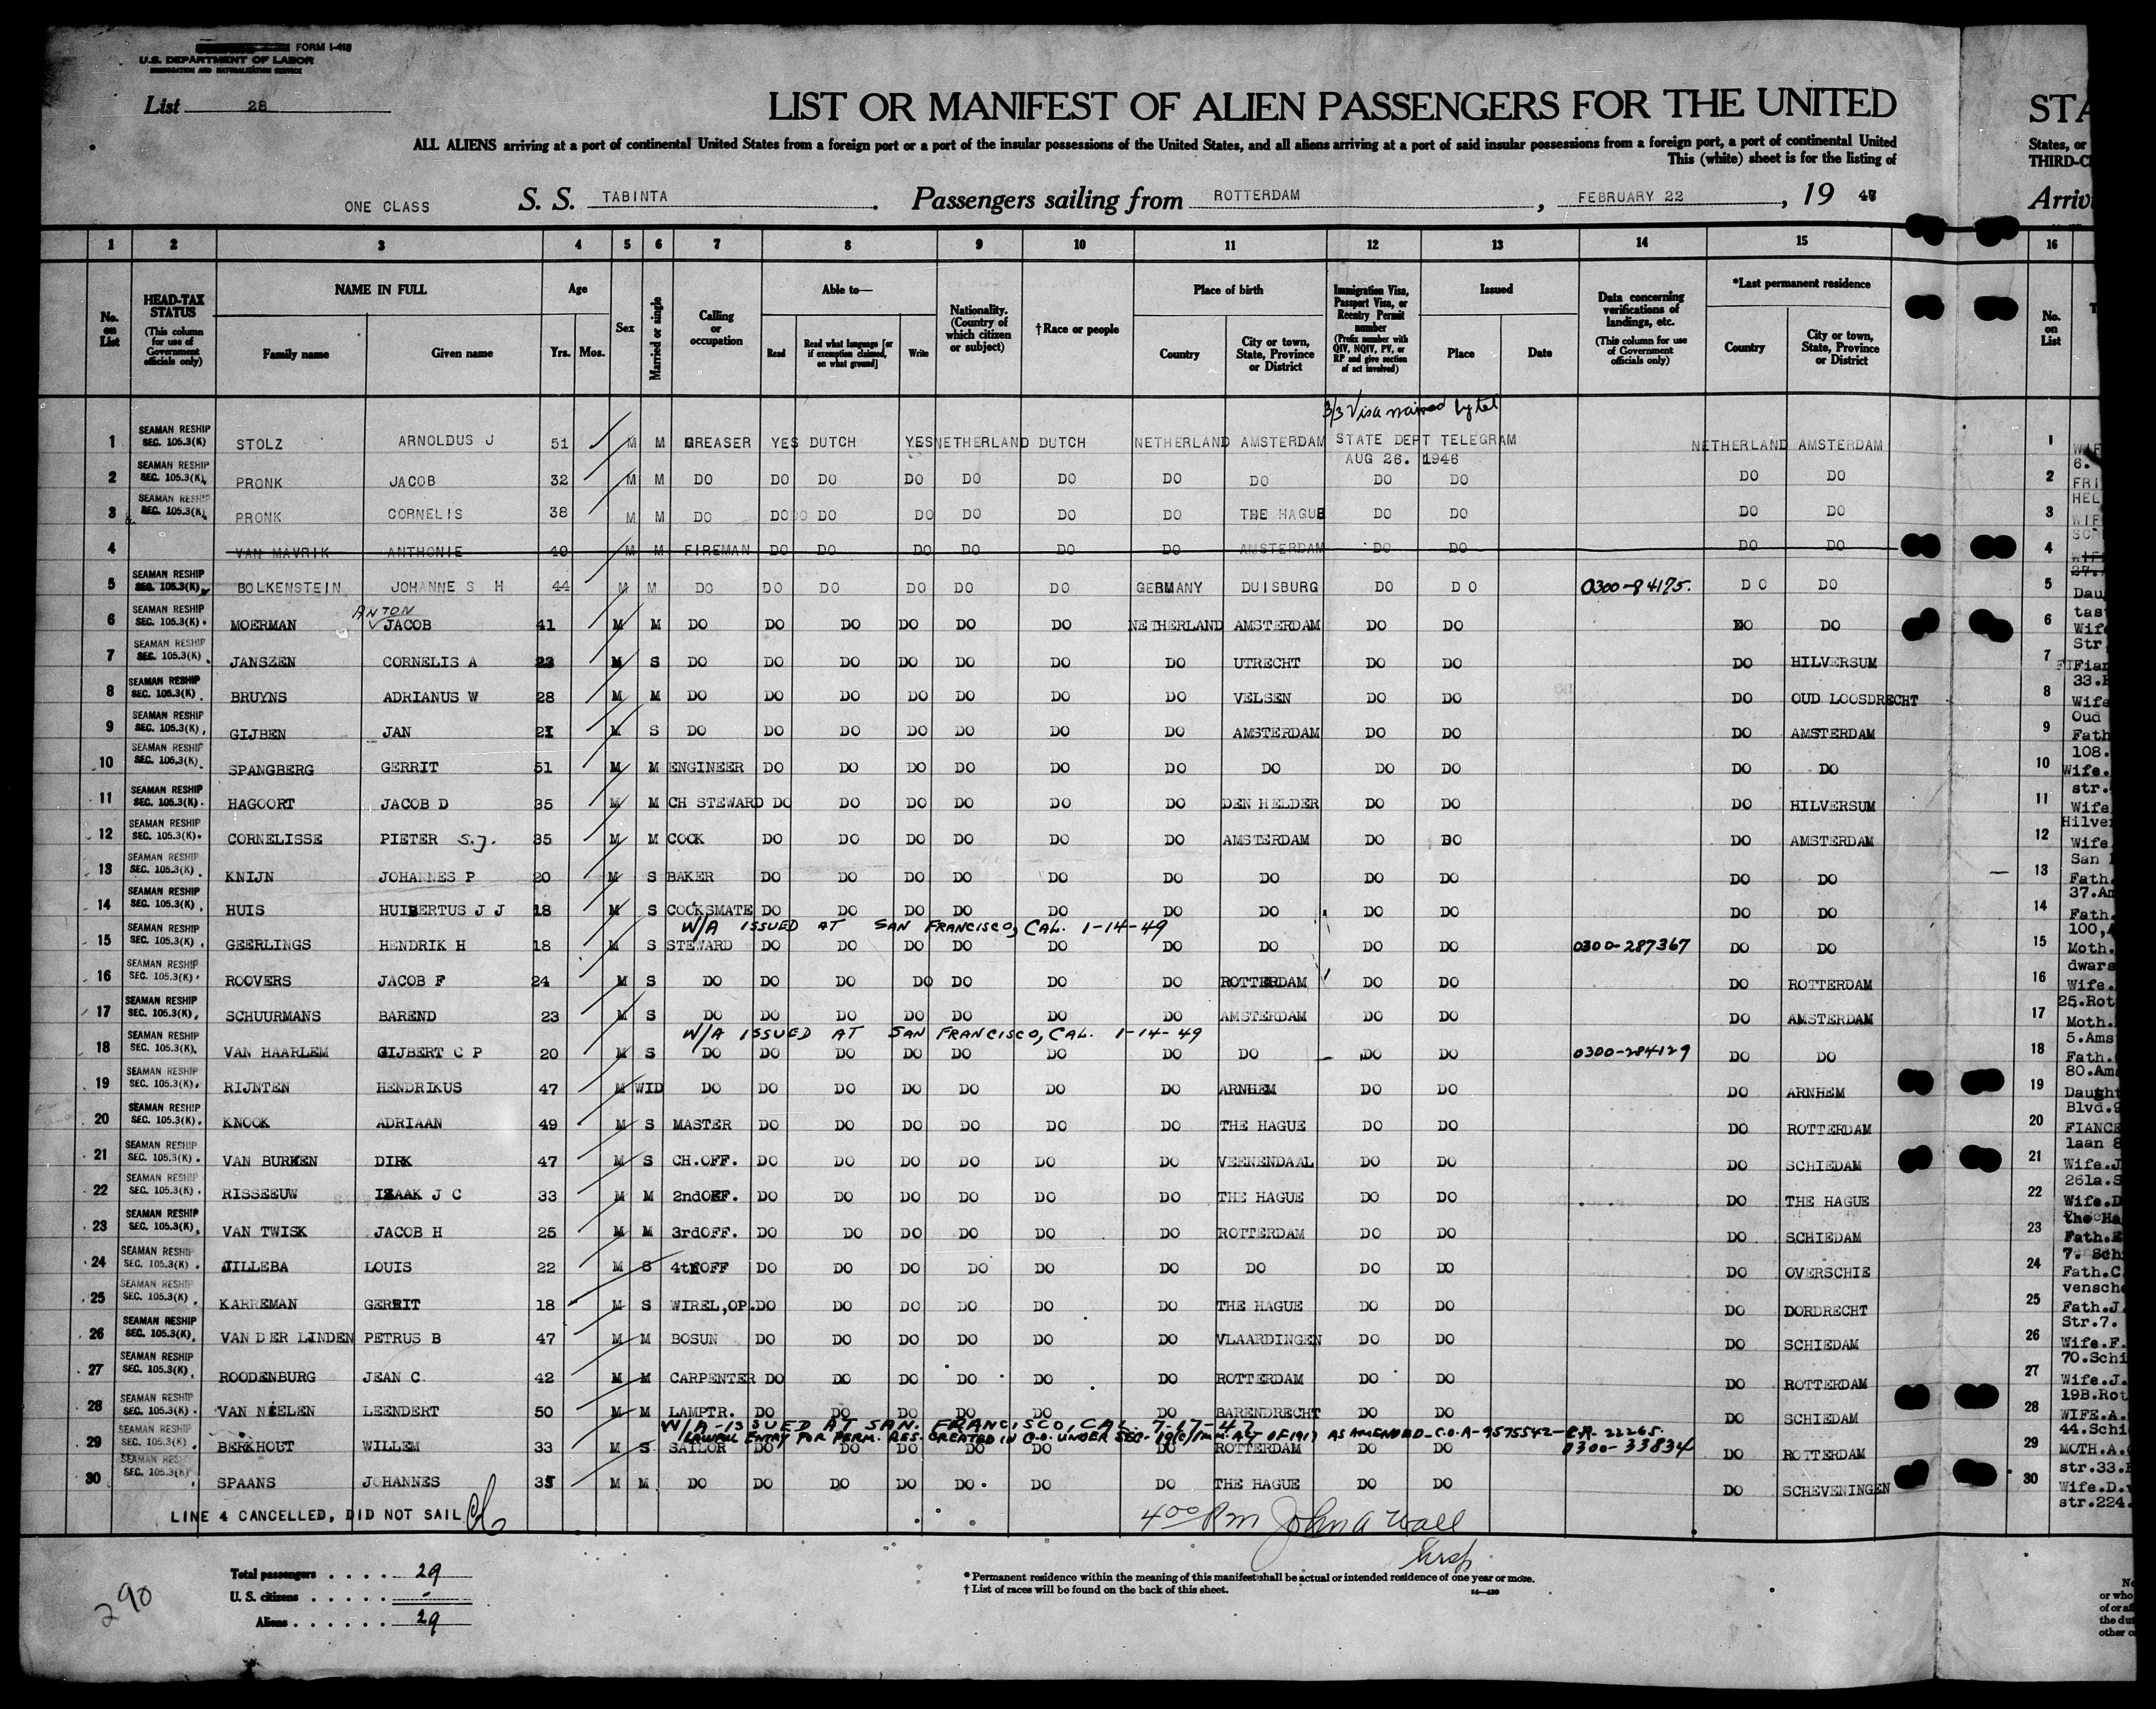 FORM I-415
U.S. DEPARTMENT OF LABOR
IMMIGRATION AND NATURALIZATION SERVICE
List 28
LIST OR MANIFEST OF ALIEN PASSENGERS FOR THE UNITED STA
ALL ALIENS arriving at a port of continental United States from a foreign port or a port of the insular possessions of the United States, and all aliens arriving at a port of said insular possessions from a foreign port, a port of continental United States, or
This (white) sheet is for the listing of THIRD-C
ONE CLASS S. S. TABINTA. Passengers sailing from ROTTERDAM, FEBRUARY 22, 19 Arriv
1 2 3 4 5 6 7 8 9 10 11 12 13 14 15 16
No. on List
HEAD-TAX STATUS (This column for use of Government officials only)
NAME IN FULL Family name Given name
Age Yrs. Mos.
Sex
Married or single
Calling or occupation
Able to— Read Read what language [or if exemption claimed, on what ground] Write
Nationality. (Country of which citizen or subject)
†Race or people
Place of birth Country City or town, State, Province or District
Immigration Visa, Passport Visa, or Reentry Permit number (Prefix number with QIV, NQIV, PV, or RP and give section of act involved)
Issued Place Date
Data concerning verifications of landings, etc. (This column for use of Government officials only)
*Last permanent residence Country City or town, State, Province or District
No. on List
3/3 Visa waived by tel
1 SEAMAN RESHIP SEC. 105.3(K) STOLZ ARNOLDUS J 51 M M GREASER YES DUTCH YES NETHERLAND DUTCH NETHERLAND AMSTERDAM STATE DEPT TELEGRAM NETHERLAND AMSTERDAM 1
AUG 26. 1946
2 SEAMAN RESHIP SEC. 105.3(K) PRONK JACOB 32 M M DO DO DO DO DO DO DO DO DO DO DO DO 2
3 SEAMAN RESHIP SEC. 105.3(K) PRONK CORNELIS 38 M M DO DODO DO DO DO DO DO THE HAGUE DO DO DO DO 3
4 VAN MAVRIK ANTHONIE 40 M M FIREMAN DO DO DO DO DO DO AMSTERDAM DO DO DO DO 4
5 SEAMAN RESHIP SEC. 105.3(K) BOLKENSTEIN JOHANNE S H 44 M M DO DO DO DO DO DO GERMANY DUISBURG DO DO 0300-84175. DO DO 5
6 SEAMAN RESHIP SEC. 105.3(K) MOERMAN ANTON JACOB 41 M M DO DO DO DO DO DO NETHERLAND AMSTERDAM DO DO DO DO 6
7 SEAMAN RESHIP SEC. 105.3(K) JANSZEN CORNELIS A 23 M S DO DO DO DO DO DO DO UTRECHT DO DO DO HILVERSUM 7
8 SEAMAN RESHIP SEC. 105.3(K) BRUYNS ADRIANUS W 28 M M DO DO DO DO DO DO DO VELSEN DO DO DO OUD LOOSDRECHT 8
9 SEAMAN RESHIP SEC. 105.3(K) GIJBEN JAN 21 M S DO DO DO DO DO DO DO AMSTERDAM DO DO DO AMSTERDAM 9
10 SEAMAN RESHIP SEC. 105.3(K) SPANGBERG GERRIT 51 M M ENGINEER DO DO DO DO DO DO DO DO DO DO DO 10
11 SEAMAN RESHIP SEC. 105.3(K) HAGOORT JACOB D 35 M M CH STEWARD DO DO DO DO DO DO DEN HELDER DO DO DO HILVERSUM 11
12 SEAMAN RESHIP SEC. 105.3(K) CORNELISSE PIETER S.J. 35 M M COCK DO DO DO DO DO DO AMSTERDAM DO DO DO AMSTERDAM 12
13 SEAMAN RESHIP SEC. 105.3(K) KNIJN JOHANNES P 20 M S BAKER DO DO DO DO DO DO DO DO DO DO DO 13
14 SEAMAN RESHIP SEC. 105.3(K) HUIS HUIBERTUS J J 18 M S COCKSMATE DO DO DO DO DO DO DO DO DO DO DO 14
W/A ISSUED AT SAN FRANCISCO, CAL. 1-14-49
15 SEAMAN RESHIP SEC. 105.3(K) GEERLINGS HENDRIK H 18 M S STEWARD DO DO DO DO DO DO DO DO DO 0300-287367 DO DO 15
16 SEAMAN RESHIP SEC. 105.3(K) ROOVERS JACOB F 24 M S DO DO DO DO DO DO DO ROTTERDAM DO DO DO ROTTERDAM 16
17 SEAMAN RESHIP SEC. 105.3(K) SCHUURMANS BAREND 23 M S DO DO DO DO DO DO DO AMSTERDAM DO DO DO AMSTERDAM 17
W/A ISSUED AT SAN FRANCISCO, CAL. 1-14-49
18 SEAMAN RESHIP SEC. 105.3(K) VAN HAARLEM GIJBERT C P 20 M S DO DO DO DO DO DO DO DO DO DO 0300-284129 DO DO 18
19 SEAMAN RESHIP SEC. 105.3(K) RIJNTEN HENDRIKUS 47 M WID DO DO DO DO DO DO DO ARNHEM DO DO DO ARNHEM 19
20 SEAMAN RESHIP SEC. 105.3(K) KNOOK ADRIAAN 49 M S MASTER DO DO DO DO DO DO THE HAGUE DO DO DO ROTTERDAM 20
21 SEAMAN RESHIP SEC. 105.3(K) VAN BURKEN DIRK 47 M S CH.OFF. DO DO DO DO DO DO VEENENDAAL DO DO DO SCHIEDAM 21
22 SEAMAN RESHIP SEC. 105.3(K) RISSEEUW IZAAK J C 33 M M 2ndOFF. DO DO DO DO DO DO THE HAGUE DO DO DO THE HAGUE 22
23 SEAMAN RESHIP SEC. 105.3(K) VAN TWISK JACOB H 25 M M 3rdOFF. DO DO DO DO DO DO ROTTERDAM DO DO DO SCHIEDAM 23
24 SEAMAN RESHIP SEC. 105.3(K) JILLEBA LOUIS 22 M S 4thOFF DO DO DO DO DO DO DO DO DO DO OVERSCHIE 24
25 SEAMAN RESHIP SEC. 105.3(K) KARREMAN GERRIT 18 M S WIREL,OP. DO DO DO DO DO DO THE HAGUE DO DO DO DORDRECHT 25
26 SEAMAN RESHIP SEC. 105.3(K) VAN DER LINDEN PETRUS B 47 M M BOSUN DO DO DO DO DO DO VLAARDINGEN DO DO DO SCHIEDAM 26
27 SEAMAN RESHIP SEC. 105.3(K) ROODENBURG JEAN C 42 M M CARPENTER DO DO DO DO DO DO ROTTERDAM DO DO DO ROTTERDAM 27
28 SEAMAN RESHIP SEC. 105.3(K) VAN NEELEN LEENDERT 50 M M LAMPTR. DO DO DO DO DO DO BARENDRECHT DO DO DO SCHIEDAM 28
W/A-ISSUED AT SAN. FRANCISCO, CAL. 7-17-47
LAWFUL ENTRY FOR PERM. RES. CREATED IN C.O. UNDER SEC. 19(c) IMM. ACT OF 1917 AS AMENDED-C.O. A-9575542-C.R. 22265.
29 SEAMAN RESHIP SEC. 105.3(K) BERKHOUT WILLEM 33 M S SAILOR DO DO DO DO DO DO ROTTERDAM DO DO 0300-33834 DO ROTTERDAM 29
30 SEAMAN RESHIP SEC. 105.3(K) SPAANS JOHANNES 35 M M DO DO DO DO DO DO DO THE HAGUE DO DO DO SCHEVENINGEN 30
LINE 4 CANCELLED, DID NOT SAIL
4 00 Pm John A Wall
Insp
Total passengers . . . . 29
U. S. citizens . . . . . -
Aliens . . . . . . 29
290
* Permanent residence within the meaning of this manifest shall be actual or intended residence of one year or more.
† List of races will be found on the back of this sheet.